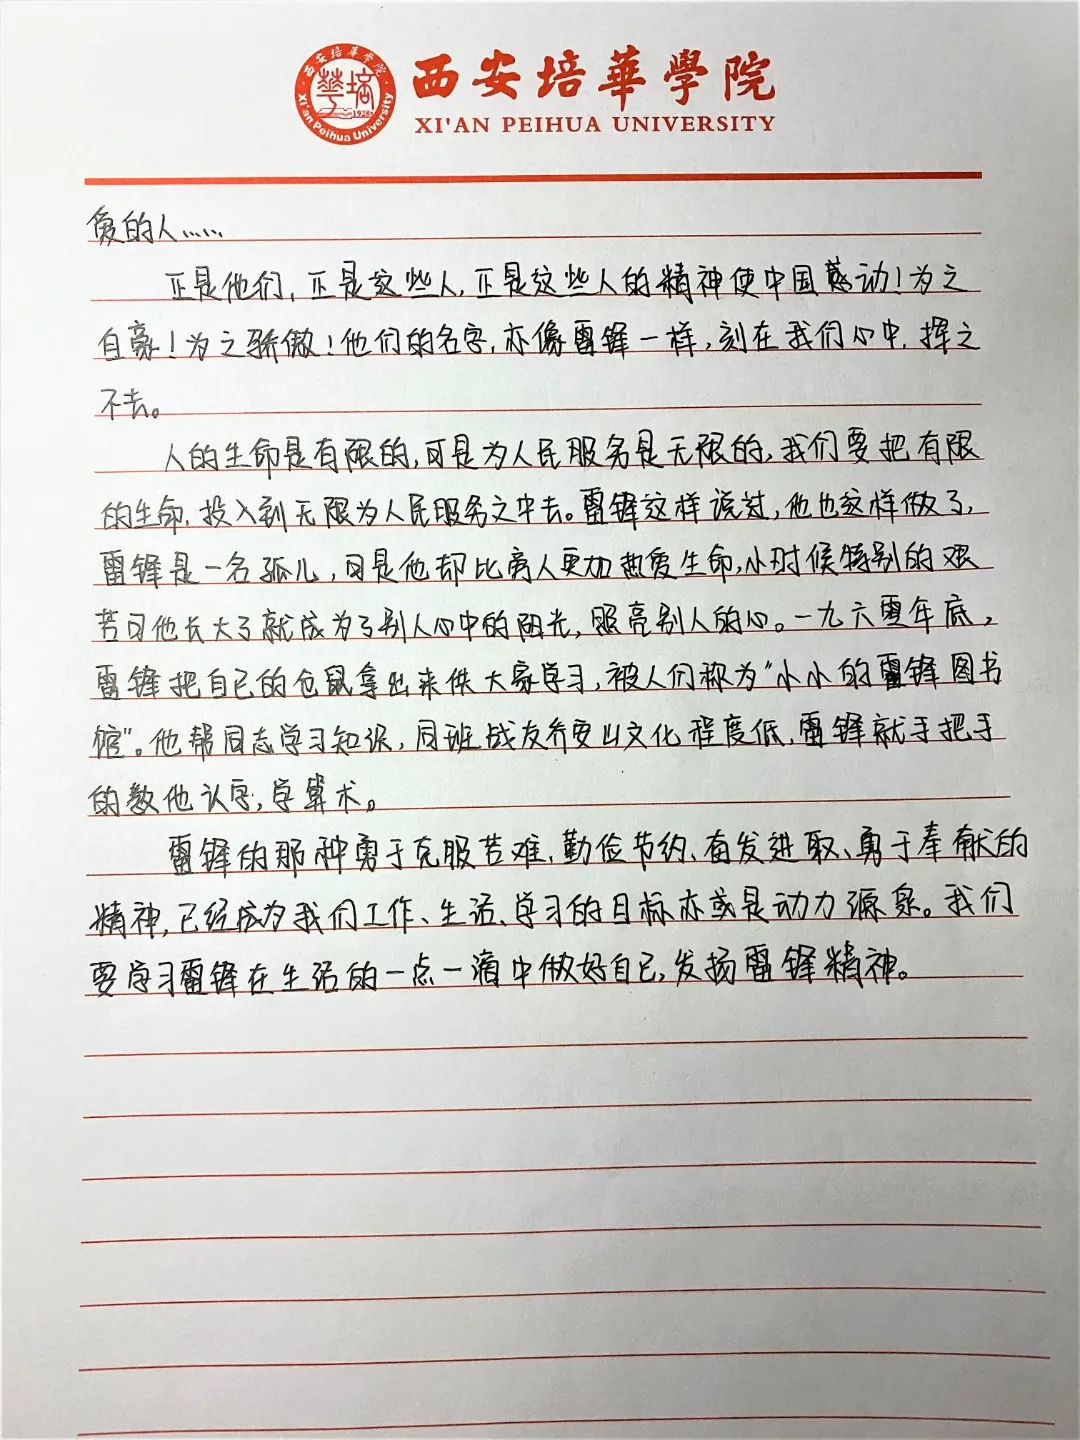 西安培華學院
XI'AN PEIHUA UNIVERSITY
西安培華學院
Xi'an Peihua University
1928
的人……
正是他们，正是这些人，正是这些人的精神使中国感动！为之
自豪！为之骄傲！他们的名字，亦像雷锋一样，刻在我们心中，挥之
不去。
人的生命是有限的，可是为人民服务是无限的，我们要把有限
的生命，投入到无限为人民服务之中去。雷锋这样说过，他也这样做了，
雷锋是一名孤儿，可是他却比旁人更加热爱生命，小时候特别的艰
苦可他长大了就成为了别人心中的阳光，照亮别人的心。一九六零年底，
雷锋把自己的仓鼠拿出来供大家学习，被人们称为“小小的雷锋图书
馆”。他帮同志学习知识，同班战友乔安山文化程度低，雷锋就手把手
的教他认字，学算术。
雷锋的那种勇于克服苦难、勤俭节约、奋发进取、勇于奉献的
精神，已经成为我们工作、生活、学习的目标亦或是动力源泉。我们
要学习雷锋在生活的一点一滴中做好自己，发扬雷锋精神。